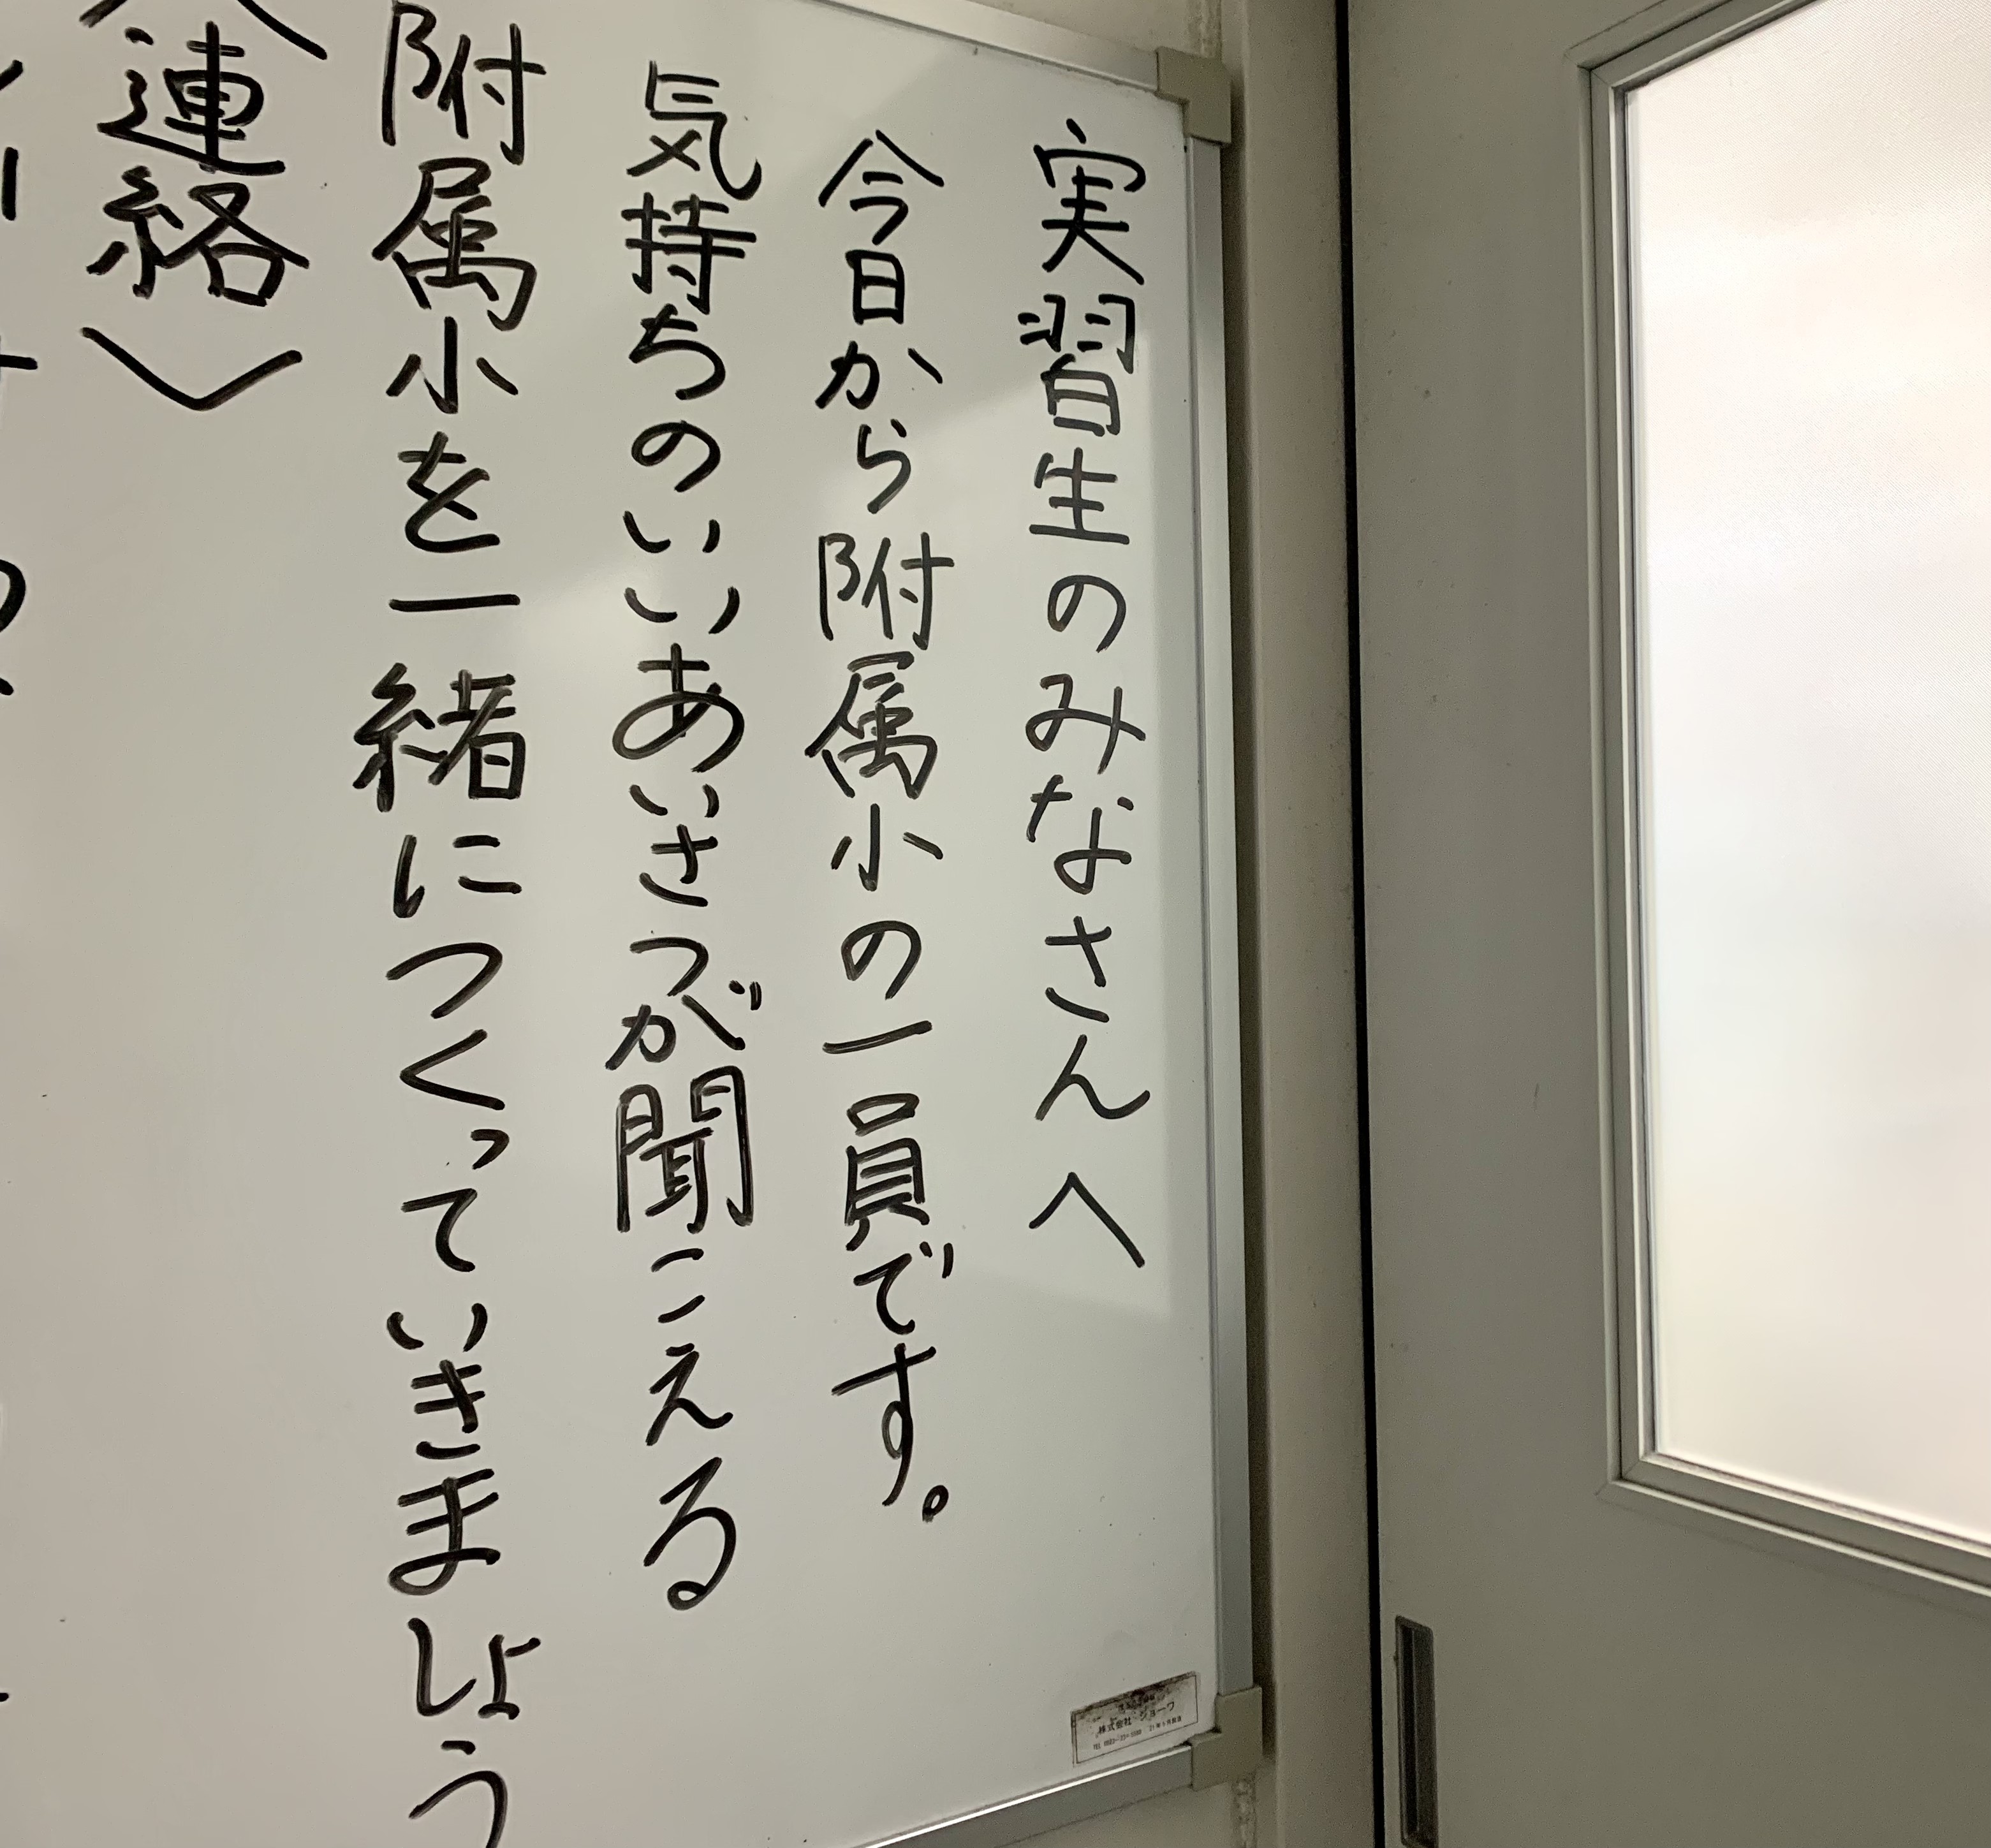 実習生のみなさんへ
今日から附属小の一員です。
気持ちのいいあいさつが聞こえる
附属小を一緒につくっていきましょう
〈連絡〉
株式会社 ジョーワ